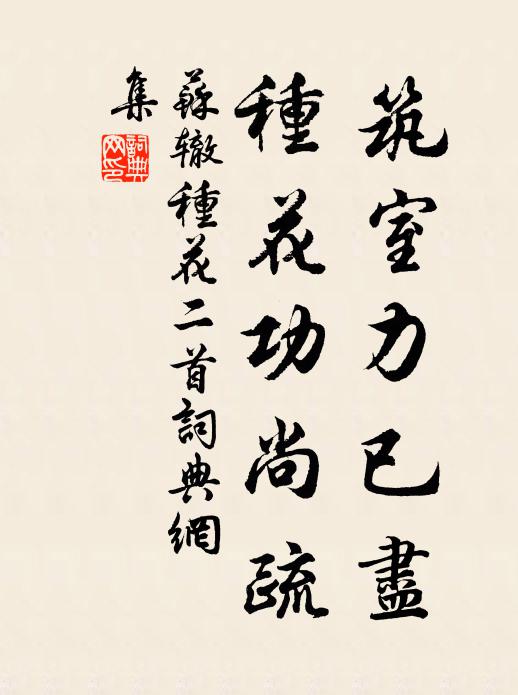 筑室力已盡
種花功尚疏
蘇辙種花二首詞典網
集
詞典
网印